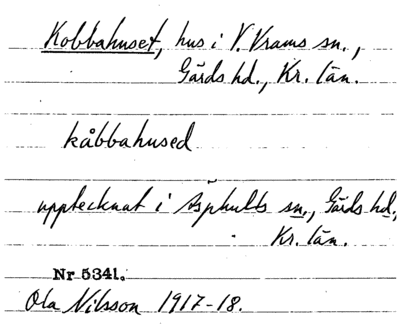 Kobbahuset, hus i V. Vrams sn.,
Gärds hd., Kr. län.
kåbbahused
upptecknat i Äsphults sn., Gärds hd.,
Kr. län.
Nr 5341.
Ola Nilsson 1917-18.